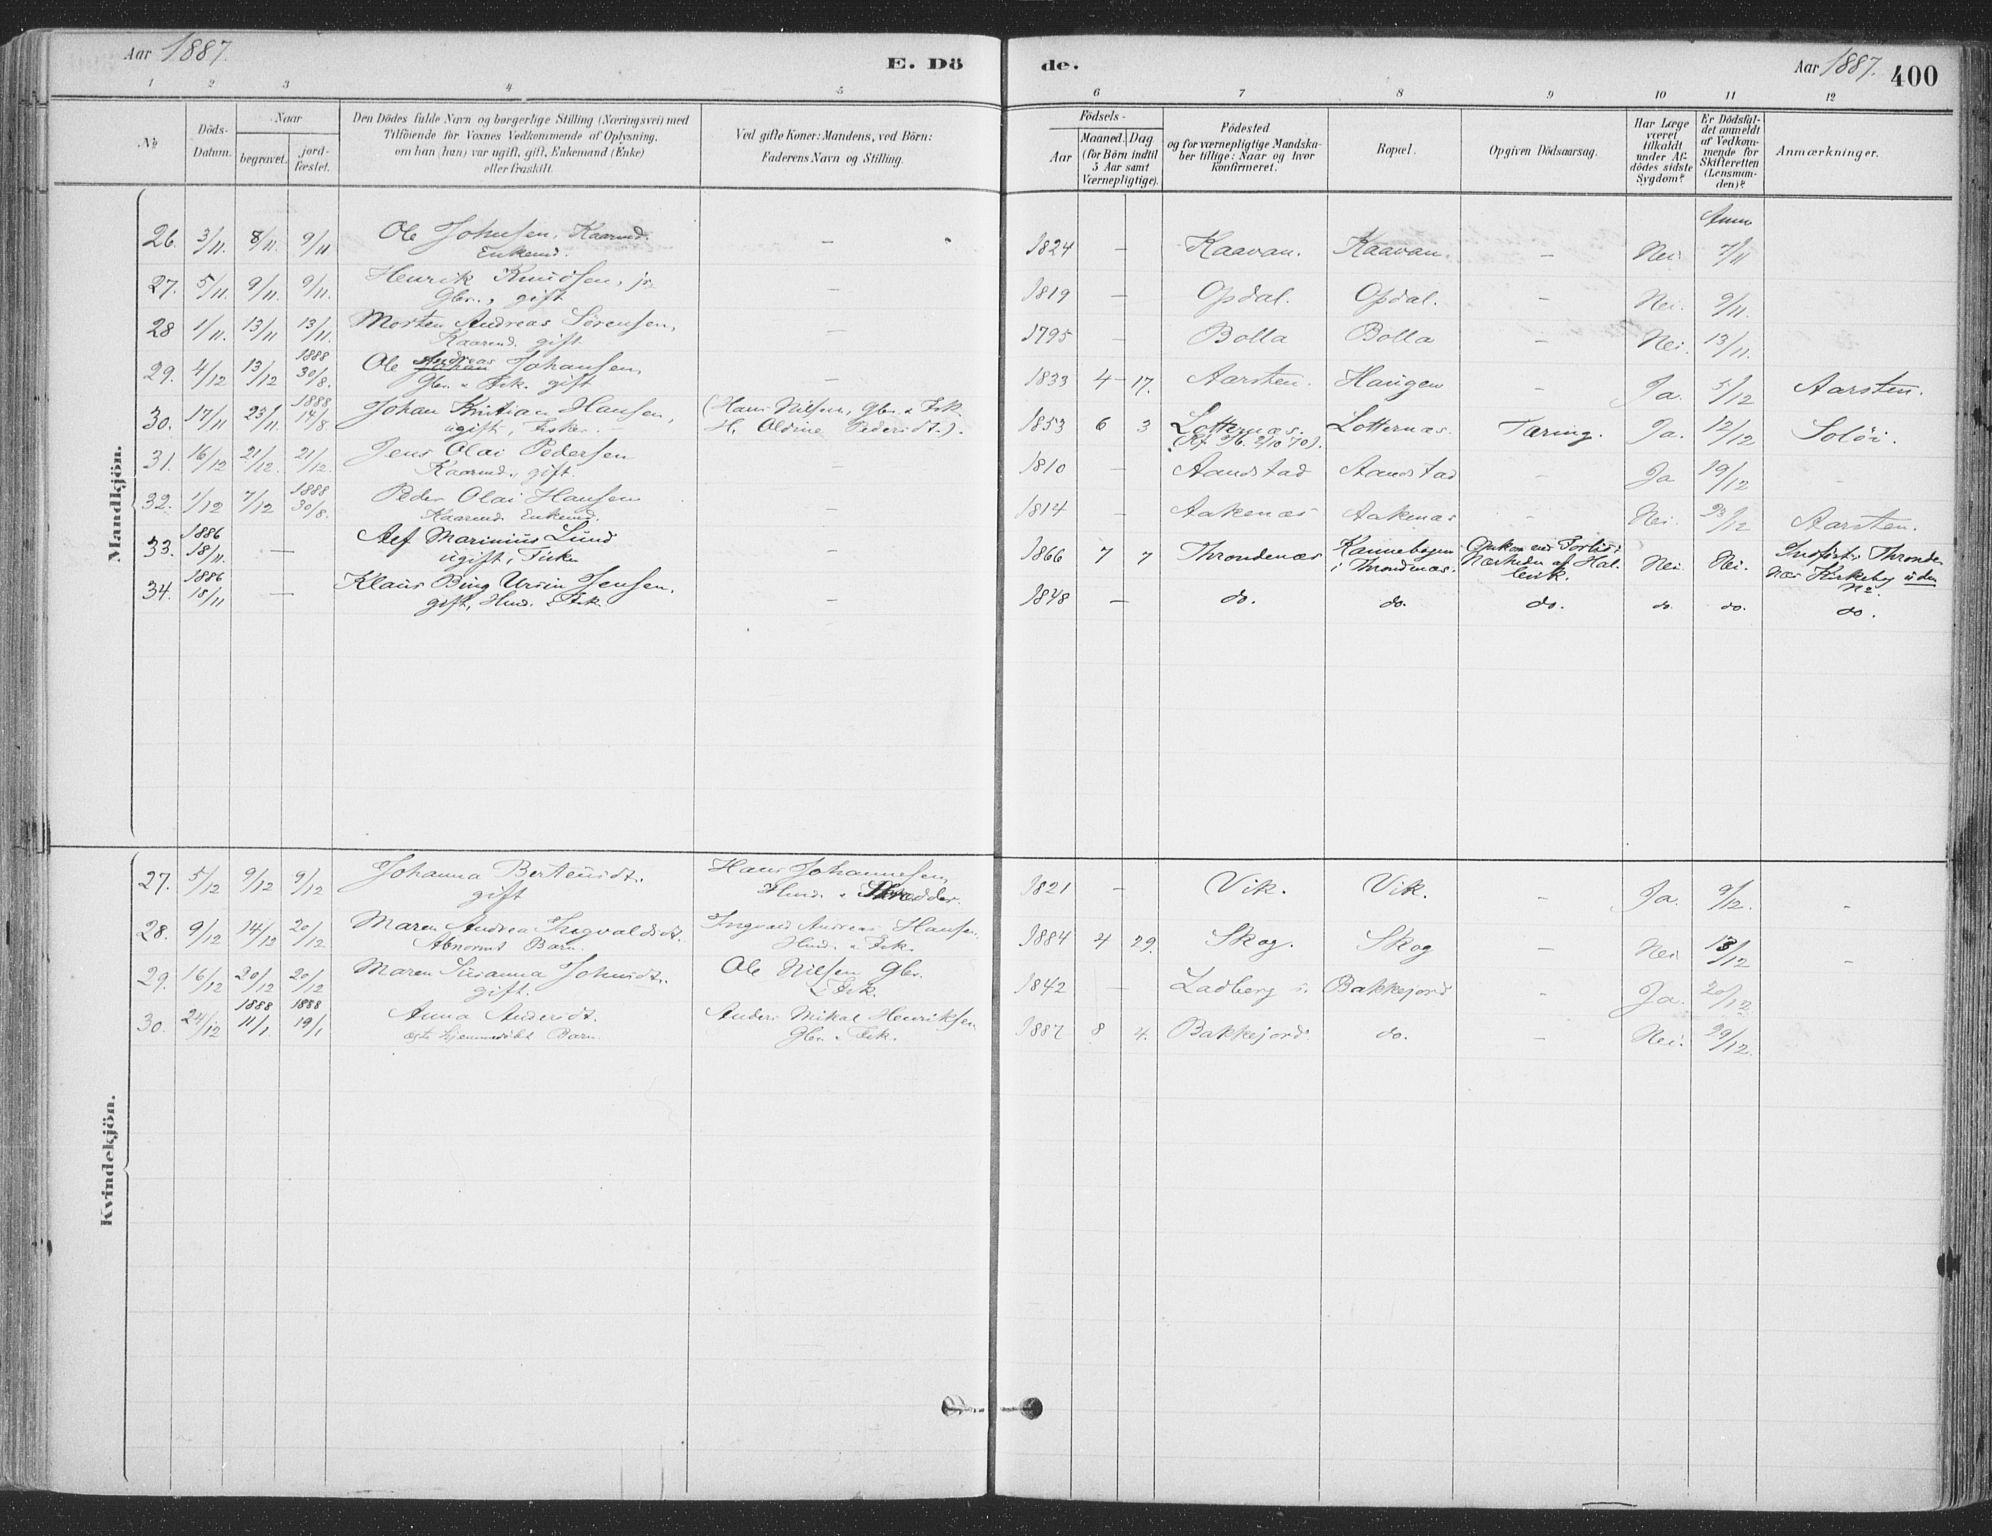 Aar 1887.
E. Dö
de.
Aar 1887.
400
1 2 3 4 5 6 7 8 9 10 11 12
№
Döds-
Datum.
Naar
begravet.
jord-
fæstet.
Den Dödes fulde Navn og borgerlige Stilling (Næringsvei) med
Tilföiende for Voxnes Vedkommende af Oplysning,
om han (hun) var ugift, gift, Enkemand (Enke)
eller fraskilt.
Ved gifte Koner: Mandens, ved Börn:
Faderens Navn og Stilling.
Födsels-
Aar
Maaned. Dag
(for Börn indtil
5 Aar samt
Værnepligtige).
Födested
og for værnepligtige Mandska-
ber tillige: Naar og hvor
konfirmeret.
Bopæl.
Opgiven Dödsaarsag.
Har Læge
været
tilkaldt
under Af-
dödes sidste
Sygdom?
Er Dödsfal-
det anmeldt
af Vedkom-
mende for
Skifteretten
(Lensman-
den)?
Anmærkninger.
Mandkjön.
Anm
26. 3/11. 8/11. 9/11 Ole Johnsen, Kaarmd. — 1824 — Kaavan. Kaavan. — Nei 7/11
Enkemd.
27. 5/11. 9/11. 9/11. Henrik Knudsen, jr. 1819 — Opdal. Opdal. — Nei. 9/11.
Gbr., gift
28 1/11. 13/11 13/11. Morten Andreas Sørensen, — 1795 — Bolla Bolla — Nei. 13/11.
Kaarmd. gift
29. 4/12 13/12 1888 30/8. Ole Andreas Johansen, — 1833 4 — 17. Aarsten. Haugen — Ja. 5/12 Aarsten.
Gbr. & Fsk. gift
30. 17/11 23/11. 1888 14/8 Johan Kristian Hansen, (Hans Nilsen, Gbr. & Fsk. 1853 6 3 Lotternæs. Lotternæs. Tæring. Ja. 12/12 Soløi.
ugift, Fisker. — H. Oldine Pedersdt.). (Kf. 2/10 70).
31. 16/12 21/12. 21/12. Jens Olai Pedersen 1810 — Aandstad Aandstad — Ja 19/12 —
Kaarmd., gift.
32. 1/12 7/12 1888 30/8. Peder Olai Hansen — 1814 — Aakenæs Aakenæs — Nei. 23/12 Aarsten.
Kaarmd. Enkemd.
33. 1886 18/11. — Alf Marinius Lund — 1866 7 7 Throndenæs Kannebogen Omkom ved Forlis i Nei Nei. Indført i Thronde-
ugift, Fisker i Throndenæs. Nærheden af Hal- næs Kirkebog uden
levik. No.
34. 1886 18/11 — Klaus Bing Ursin Jensen. — 1848 — do. do. do. do. do. do.
gift, Hmd. & Fsk.
Kvindekjön.
27. 5/12 9/12 9/12 Johanna Berteusdt. Hans Johannesen, 1821 — Vik. Vik. — Ja. 9/12. —
gift Hmd. & Skrædder.
28. 9/12 14/12 20/12 Maren Andrea Ingvaldsdt. Ingvald Andreas Hansen. 1884 4 29. Skog. Skog — Nei 13/12 —
Abnormt Barn Hmd. & Fsk.
29. 16/12 20/12 20/12 Maren Susanna Johnsdt. Ole Nilsen Gbr. 1842 — Ladberg i. Bakkejord — Ja. 20/12
gift. & Fsk.
30. 24/12 1888 11/1. 1888 19/1 Anna Andersdt. Anders Mikal Henriksen 1887 8 4. Bakkejord do. — Nei. 29/12.
ægte hjemmedøbt Barn. Gbr. & Fsk.